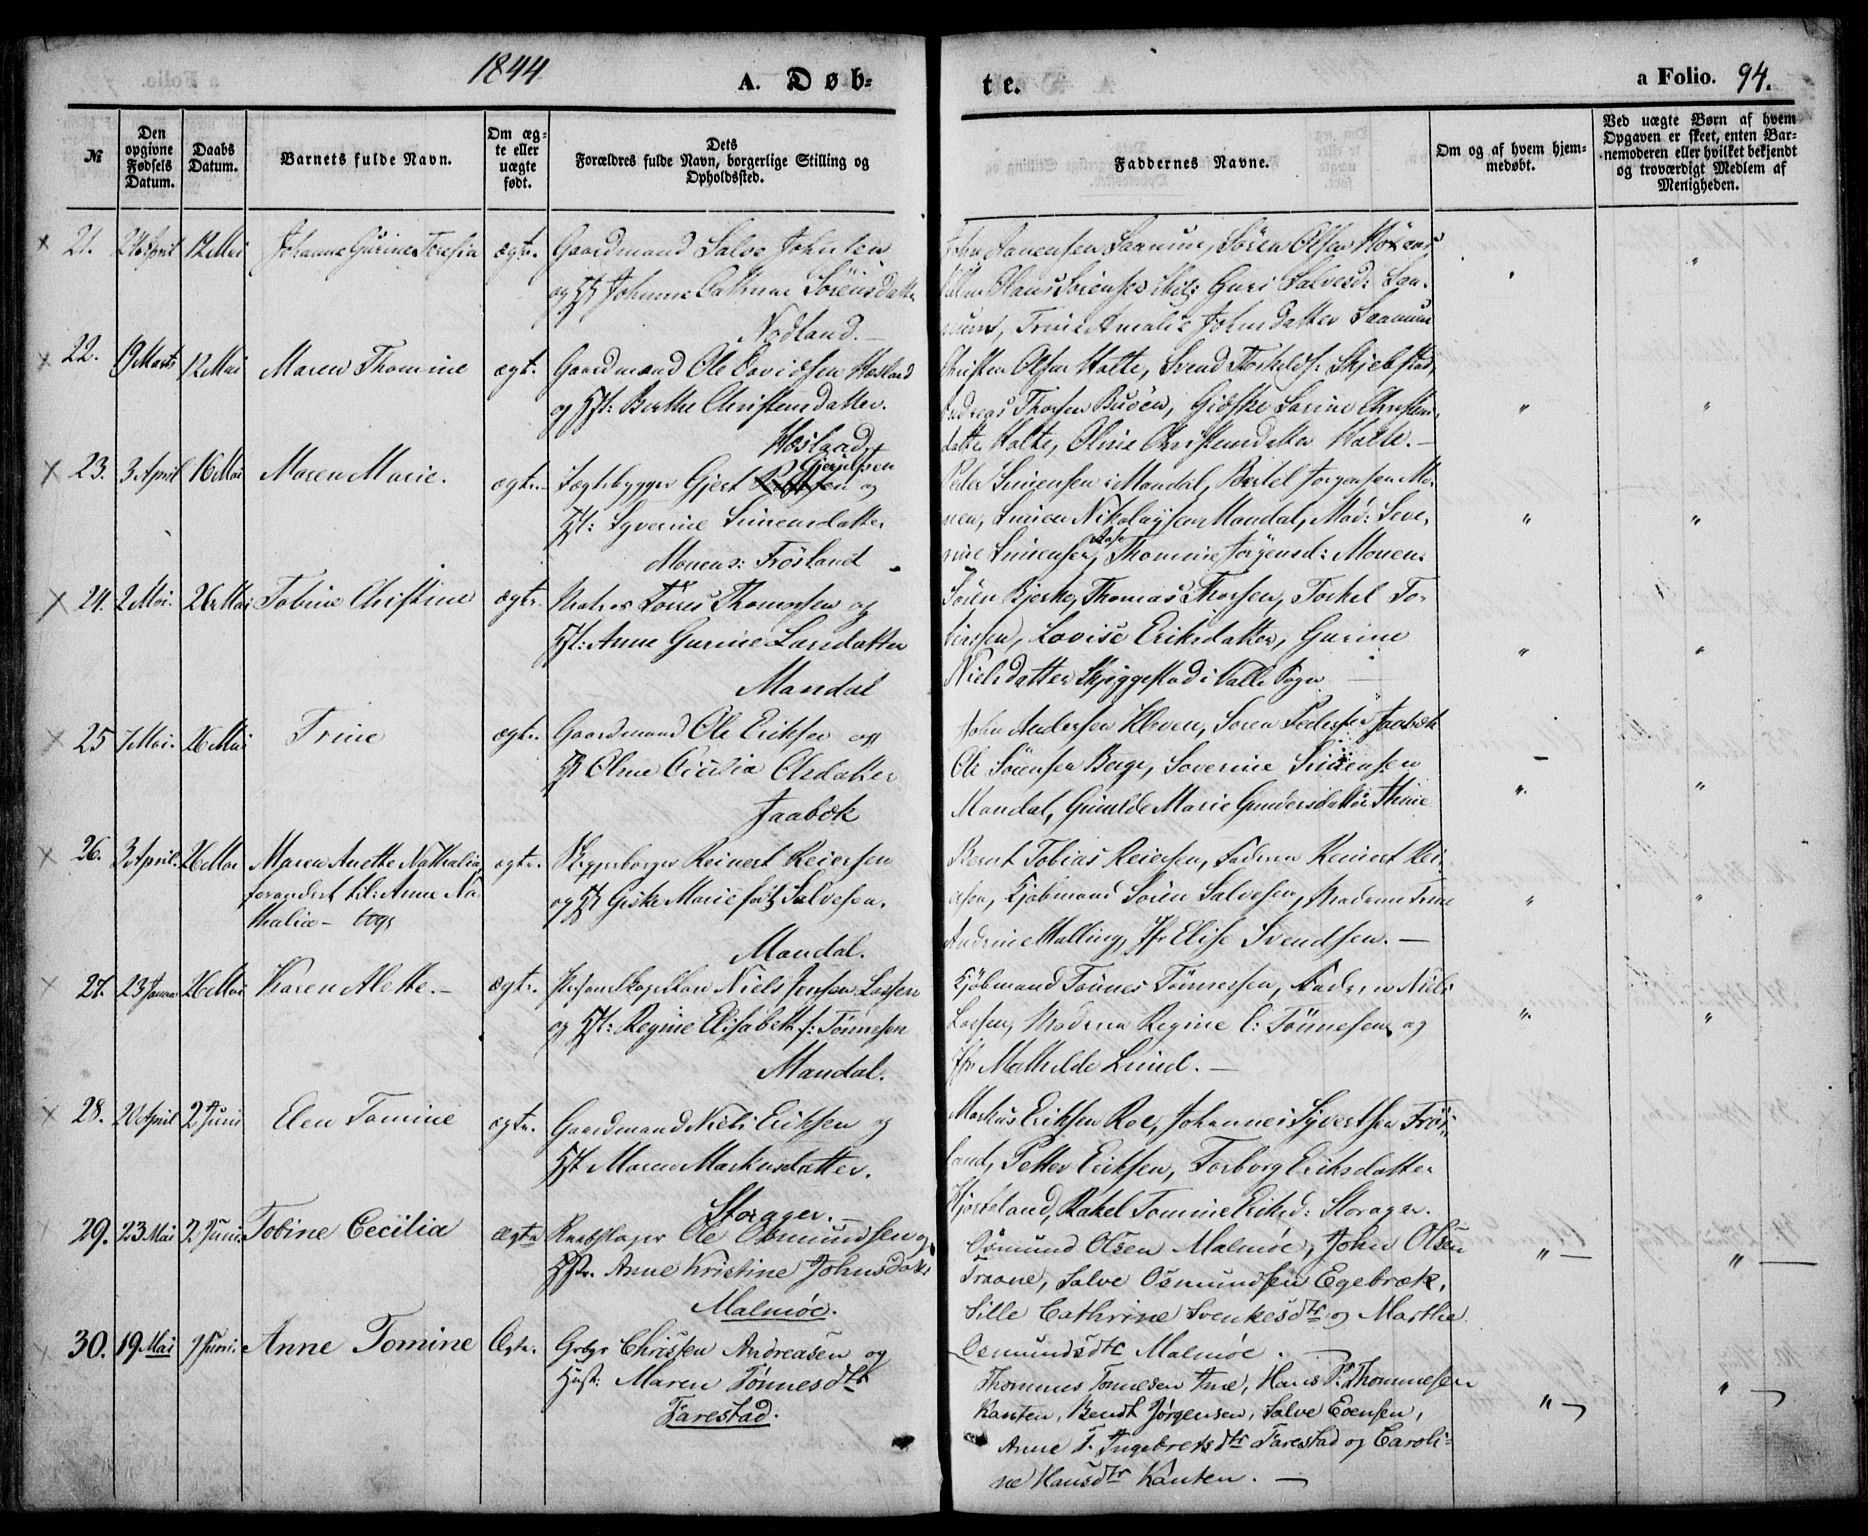 1844
A. Døb=
te.
a Folio. 94.
№
Den opgivne Fødsels Datum.
Daabs Datum.
Barnets fulde Navn.
Om ægte eller uægte født.
Dets Forældres fulde Navn, borgerlige Stilling og Opholdssted.
Faddernes Navne.
Om og af hvem hjemmedøbt.
Ved uægte Børn af hvem Opgaven er skeet, enten Barnemoderen eller hvilket bekjendt og troværdigt Medlem af Menigheden.
21. 24 April 12 Mai Johanne Gurine Teresia ægte. Gaardmand Salve Johnsen
og Hst Johanne Cathrine Sörensdatter
Nodland.
Saanum, Sören Olsen
Claus Sörensen ibid: Guri Salvesd: Saa-
num, Trine Amalie Johnsdatter Saanum
22. 19 Marts 12 Mai Maren Thomine ægt. Gaardmand Ole Davidsen Hæsland
og Hst: Berthe Christensdatter.
Hæsland
Christen Olsen Halte, Svend
Andreas Thorsen Buöen, Gidske Sarine Christens
datter Halte, Oline Christensdatter Halte.
23. 3 April 16 Mai Maren Marie. ægte. Gjert Gjertsen og
Hst: Syverine Simensdatter
Monens: Frösland
Peder Simensen i Mandal, Bertel Jörgensen Mo-
nen, Simen Nikolaysen Mandal, Mad: Seve-
rine Simensen, Thomine Jörgensd: Monen.
24. 2 Mai. 26 Mai Tobine Christine ægte. Matros Tönnes Thomassen og
Hst: Anne Gurine Larsdatter
Mandal
Sören Bjerke, Thomas Thorsen, Torkel To-
biassen, Lovise Eriksdatter, Gurine
Nielsdatter Skjeggestad i Valle Sogn
25 7 Mai. 26 Mai Trine ægte. Gaardmand Ole Eriksen og
Hst Oline Cicilia Olsdatter
Jaabæk
John Andersen Kleven, Sören Pedersen Jaabæk
Ole Sörensen Berge, Severine Simensen
Mandal, Gunilde Marie Gundersdatter
26. 3 April. 26 Mai Maren Anette Nathalia, ægte. Skipsborger Reinert Reiersen
forandert til: Anne Na-
thalia
og Hst Giske Marie född Salvesen.
Mandal.
Bernt Tobias Reiersen, Faderen Reinert Rei-
ersen, Kjöbmand Sören Salvesen, Madame Trine
Andrine Malling, Jfr Elise Svendsen.
27. 23 Januar 26 Mai Karen Alette. ægte. Niels Jensen Lassen
og Hst: Regine Elisabeth f: Tönnesen
Mandal.
Kjöbmand Tönnes Tönnessen, Faderen Niels
Lassen, Madame Regine E: Tönnesen og
Jfr Mathilde Lund.
28. 20 April 2 Juni Elen Tomine ægte. Gaardmand Niels Eriksen og
Hst Maren Markusdatter.
Storager.
Markus Eriksen Roe, Johannes Syvertsen Frös-
land, Petter Eriksen, Torborg Eriksdatter
Rakel Tomine Eriksd: Storager.
29. 23 Mai 2 Juni. Tobine Cecilia Ægte Ole Osmundsen og
Hstr. Anne Kristine Johnsdatr
Malmöe.
Osmund Olsen Malmöe, John Olsen
Traane, Salve Osmundsen Egebræk,
Sille Cathrine Svenkesdtr og Marthe
Osmundsdtr Malmöe.
30. 19 Mai Juni. Anne Tomine Ægte. Grbgr Christen Andreasen og
Hust: Maren Tönnesdtr
Farestad.
Thommes Tönnesen Ime, Hans P: Thommesen
Kanten, Bendt Jørgensen, Salve Evensen,
Anne T. Ingebretsdtr Farestad og Caroli-
ne Hansdtr Kanten.